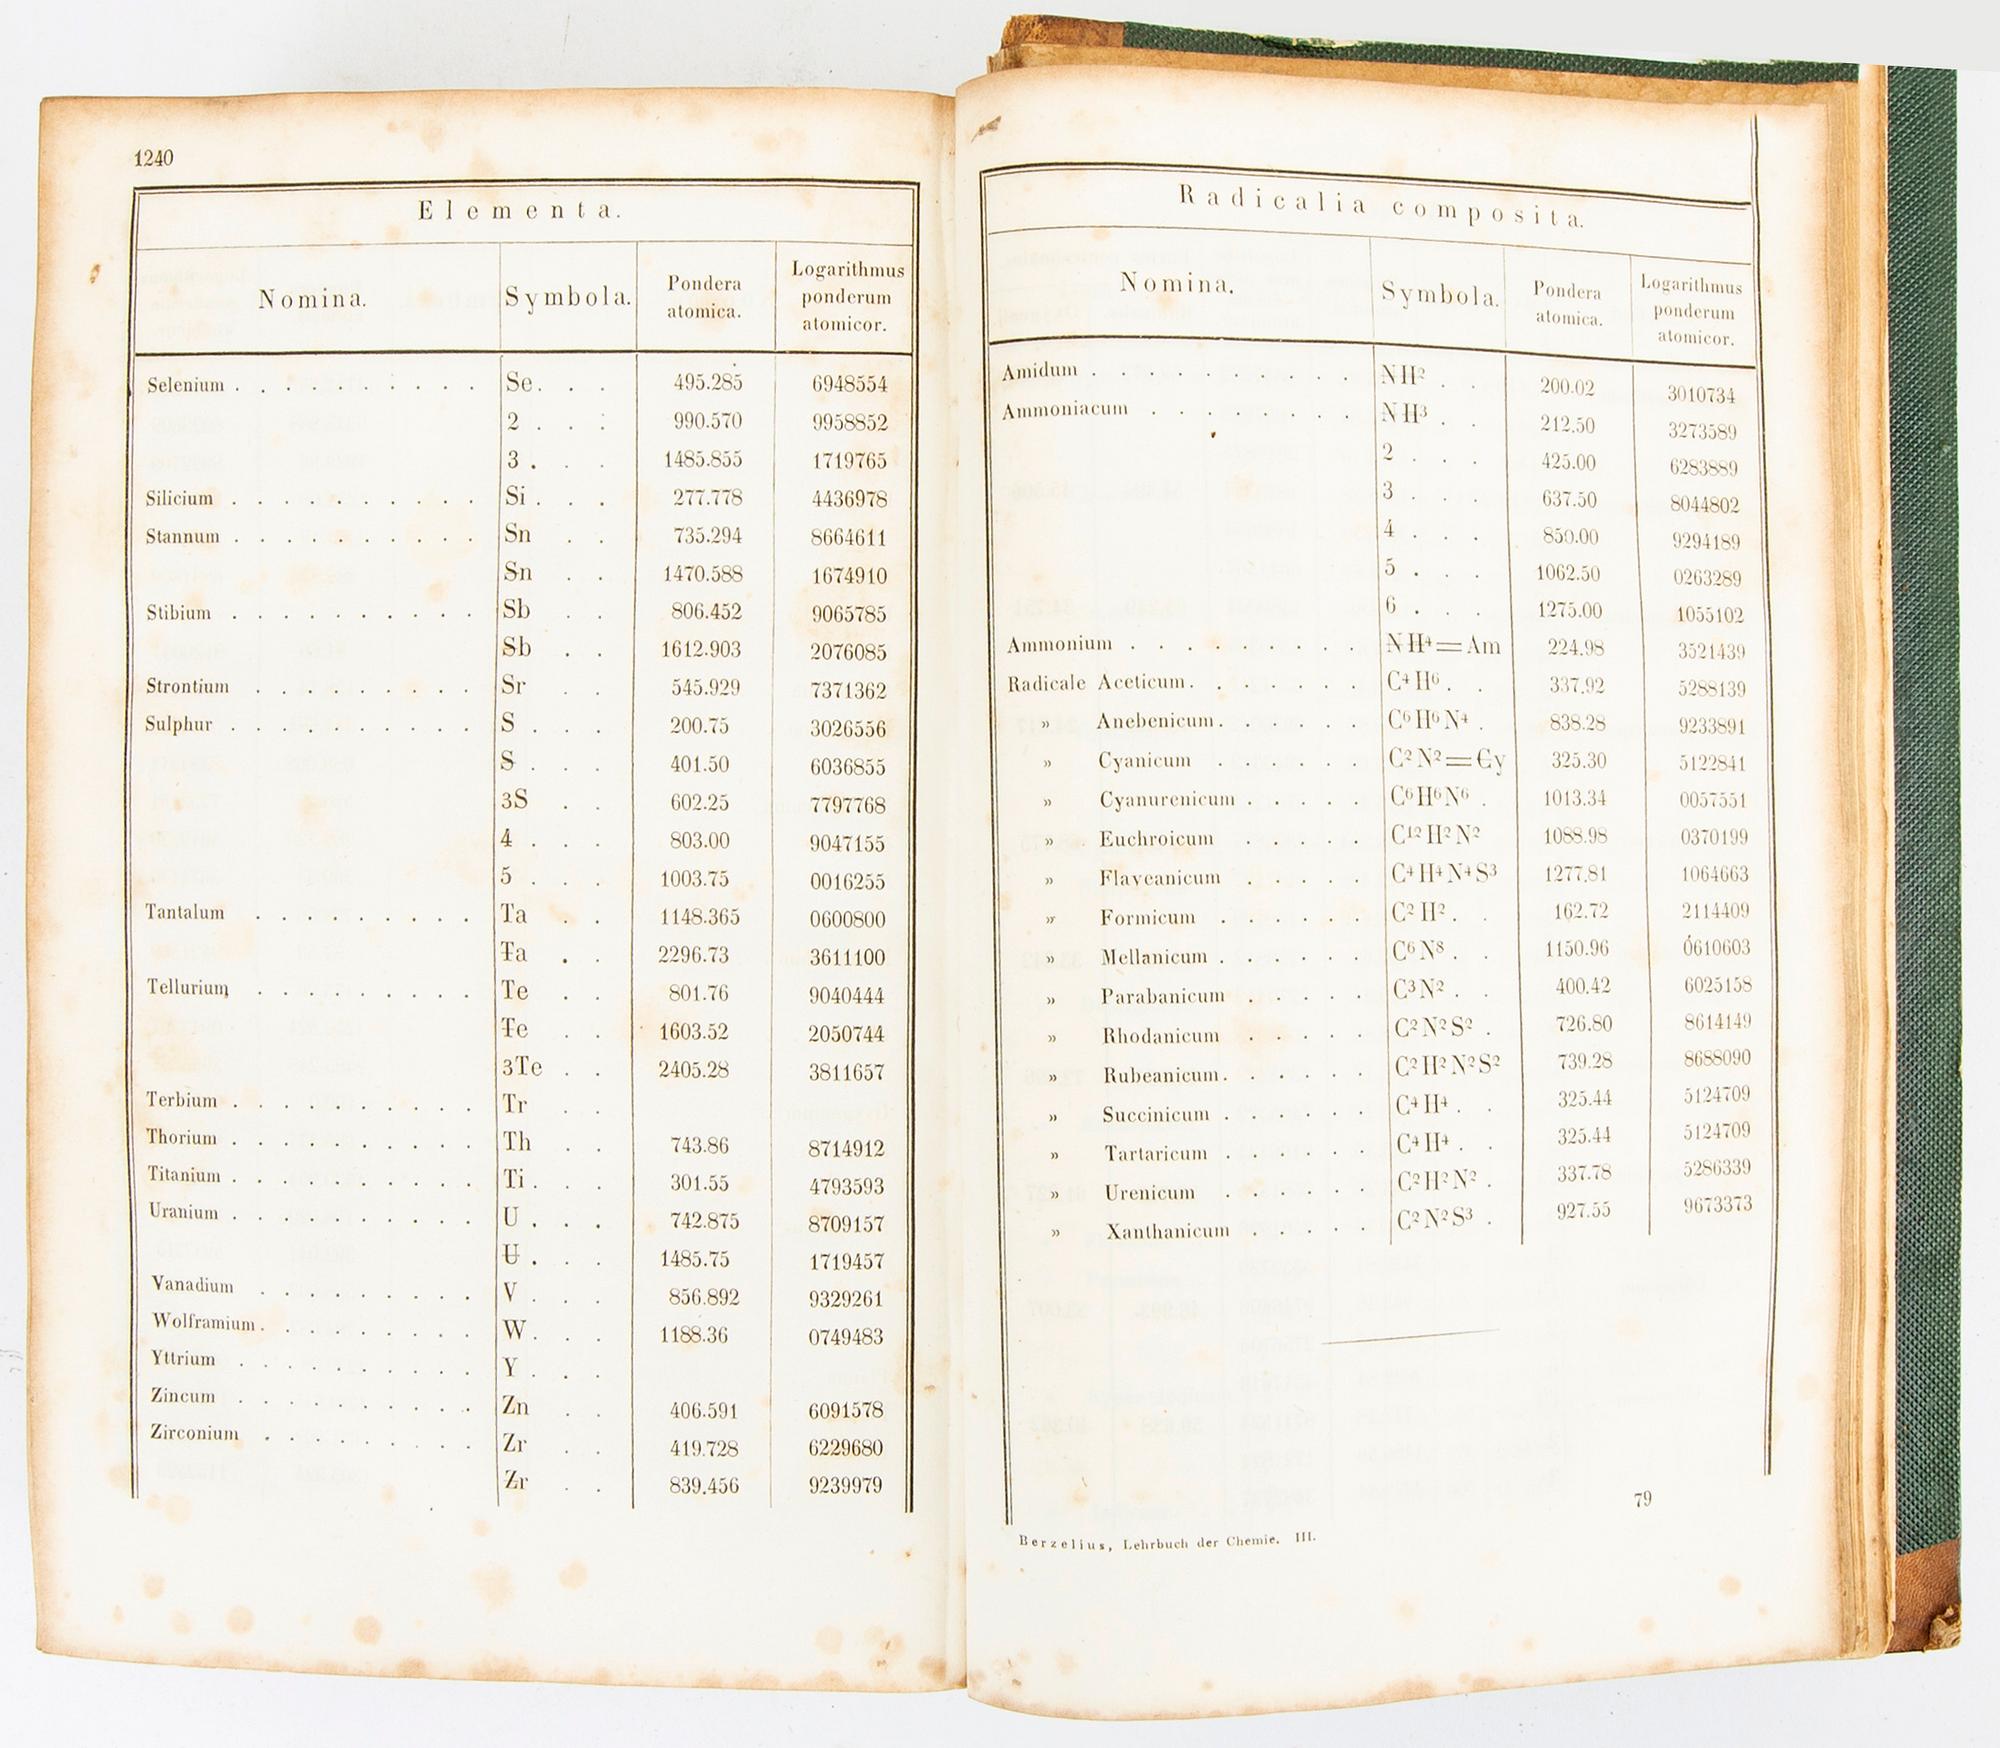 1240
Elementa.
Nomina. Symbola. Pondera atomica. Logarithmus ponderum atomicor.
Selenium . . . . . . . . . . Se . . . 495.285 6948554
2 . . . 990.570 9958852
3 . . . 1485.855 1719765
Silicium . . . . . . . . . . Si . . . 277.778 4436978
Stannum . . . . . . . . . . Sn . . 735.294 8664611
Sn . . 1470.588 1674910
Stibium . . . . . . . . . . Sb . . 806.452 9065785
S̶b . . 1612.903 2076085
Strontium . . . . . . . . . Sr . . 545.929 7371362
Sulphur . . . . . . . . . . S . . . 200.75 3026556
S̶ . . . 401.50 6036855
3S . . 602.25 7797768
4 . . . 803.00 9047155
5 . . . 1003.75 0016255
Tantalum . . . . . . . . . Ta . . 1148.365 0600800
T̶a . . 2296.73 3611100
Tellurium . . . . . . . . . Te . . 801.76 9040444
T̶e . . 1603.52 2050744
3Te . . 2405.28 3811657
Terbium . . . . . . . . . . Tr . .
Thorium . . . . . . . . . . Th . . 743.86 8714912
Titanium . . . . . . . . . . Ti . . . 301.55 4793593
Uranium . . . . . . . . . . U . . . 742.875 8709157
U̶ . . . 1485.75 1719457
Vanadium . . . . . . . . . V . . . 856.892 9329261
Wolframium . . . . . . . . . W . . . 1188.36 0749483
Yttrium . . . . . . . . . . Y . . .
Zincum . . . . . . . . . . Zn . . 406.591 6091578
Zirconium . . . . . . . . . Zr . . 419.728 6229680
Z̶r . . 839.456 9239979
Radicalia composita.
Nomina. Symbola. Pondera atomica. Logarithmus ponderum atomicor.
Amidum . . . . . . . . . . N̶H̶² . . 200.02 3010734
Ammoniacum . . . . . . . . N̶H̶³ . . 212.50 3273589
2 . . . 425.00 6283889
3 . . . 637.50 8044802
4 . . . 850.00 9294189
5 . . . 1062.50 0263289
6 . . . 1275.00 1055102
Ammonium . . . . . . . . . N̶H̶⁴=Am 224.98 3521439
Radicale Aceticum . . . . . . C⁴H⁶ . . 337.92 5288139
» Anebenicum . . . . . . C⁶H⁶N⁴ . 838.28 9233891
» Cyanicum . . . . . . C²N²=C̶y 325.30 5122841
» Cyanurenicum . . . . . C⁶H⁶N⁶ . 1013.34 0057551
» Euchroicum . . . . . C¹²H²N² 1088.98 0370199
» Flaveanicum . . . . . C⁴H⁴N⁴S³ 1277.81 1064663
» Formicum . . . . . . C²H² . . 162.72 2114409
» Mellanicum . . . . . . C⁶N⁸ . . 1150.96 0610603
» Parabanicum . . . . . C³N² . . 400.42 6025158
» Rhodanicum . . . . . C²N²S² . 726.80 8614149
» Rubeanicum . . . . . . C²H²N²S² 739.28 8688090
» Succinicum . . . . . . C⁴H⁴ . . 325.44 5124709
» Tartaricum . . . . . . C⁴H⁴ . . 325.44 5124709
» Urenicum . . . . . . C²H²N² . 337.78 5286339
» Xanthanicum . . . . . C²N²S³ . 927.55 9673373
Berzelius, Lehrbuch der Chemie. III. 79